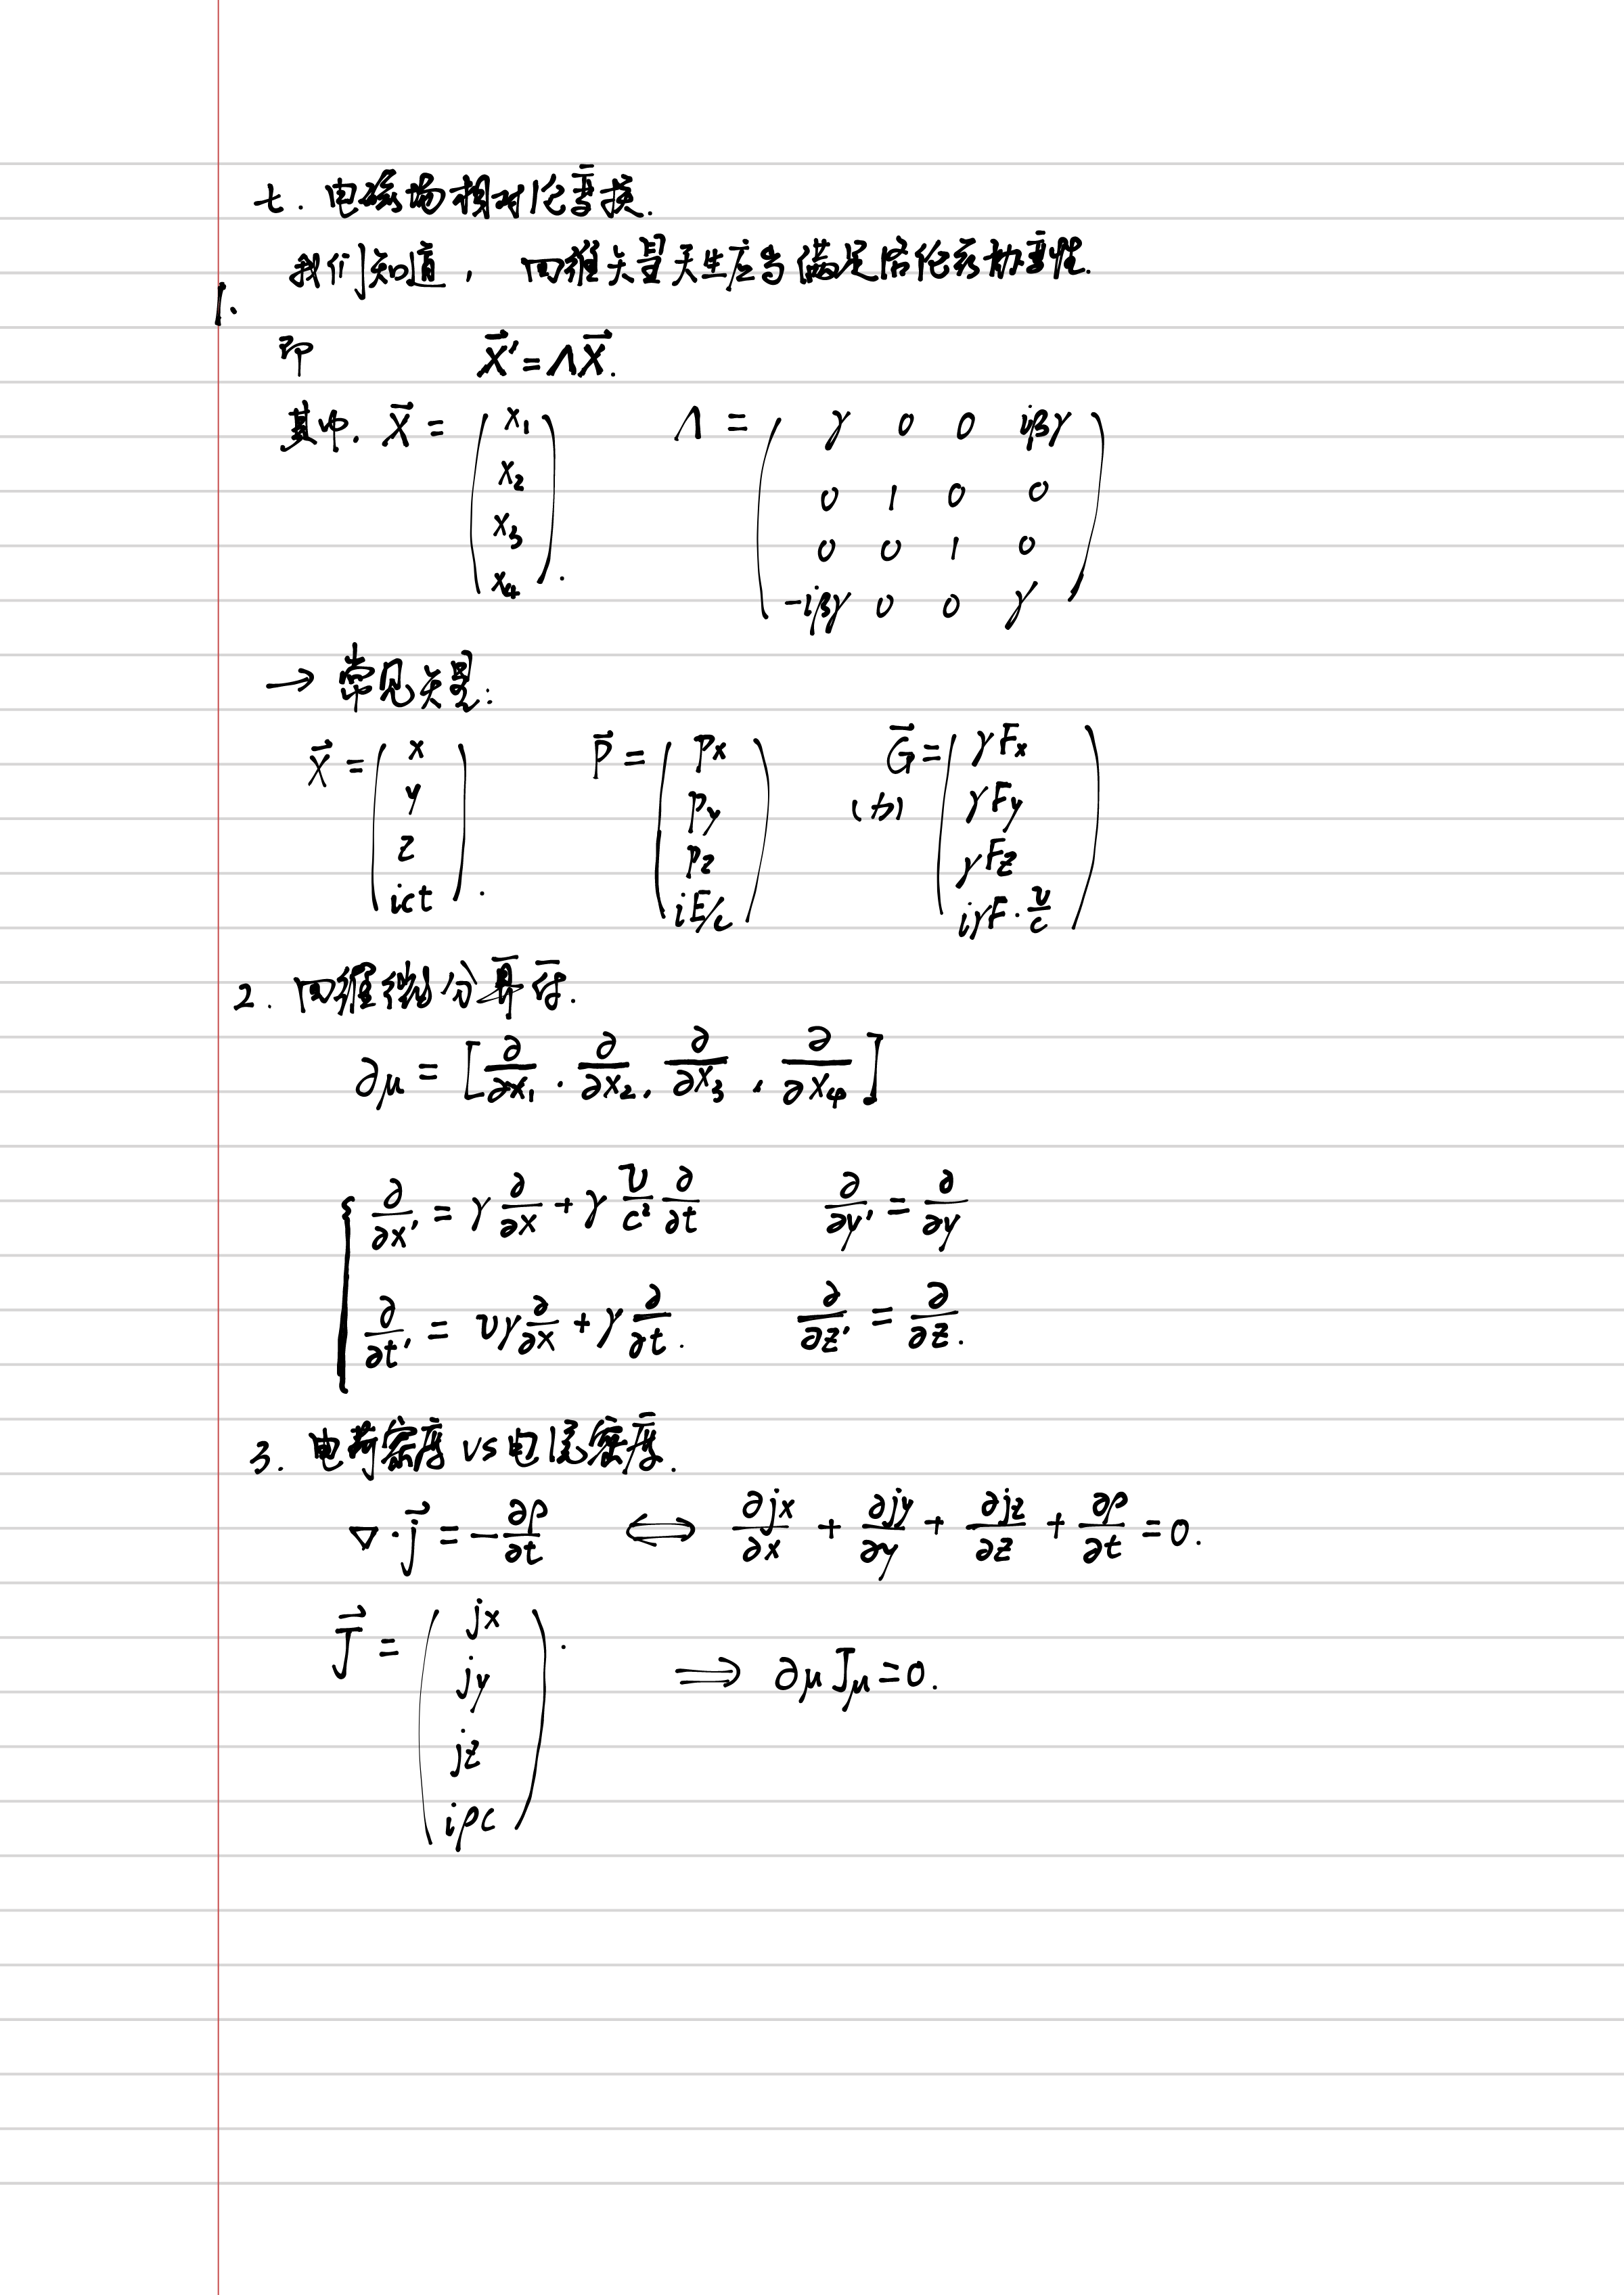 七. 电磁场相对论变换.
我们知道, 四维矢量天生应当满足洛伦兹协变性.
1.
即 X⃗' = ΛX⃗.
其中. X⃗ = (x₁ x₂ x₃ x₄). Λ = (γ 0 0 iβγ
0 1 0 0
0 0 1 0
-iβγ 0 0 γ)
→ 常见矢量:
X⃗ = (x y z ict). P⃗ = (px py pz iE/c) G⃗ = (γFx γFy γFz iγF·v/c)
(力)
2. 四维微分算符.
∂μ = [∂/∂x₁, ∂/∂x₂, ∂/∂x₃, ∂/∂x₄]
{ ∂/∂x' = γ ∂/∂x + γ v/c² ∂/∂t ∂/∂y' = ∂/∂y
∂/∂t' = vγ ∂/∂x + γ ∂/∂t. ∂/∂z' = ∂/∂z.
3. 电荷密度 vs 电流密度.
∇·j⃗ = -∂ρ/∂t ⟺ ∂jx/∂x + ∂jy/∂y + ∂jz/∂z + ∂ρ/∂t = 0.
J⃗ = (jx jy jz iρc). ⟹ ∂μJμ = 0.